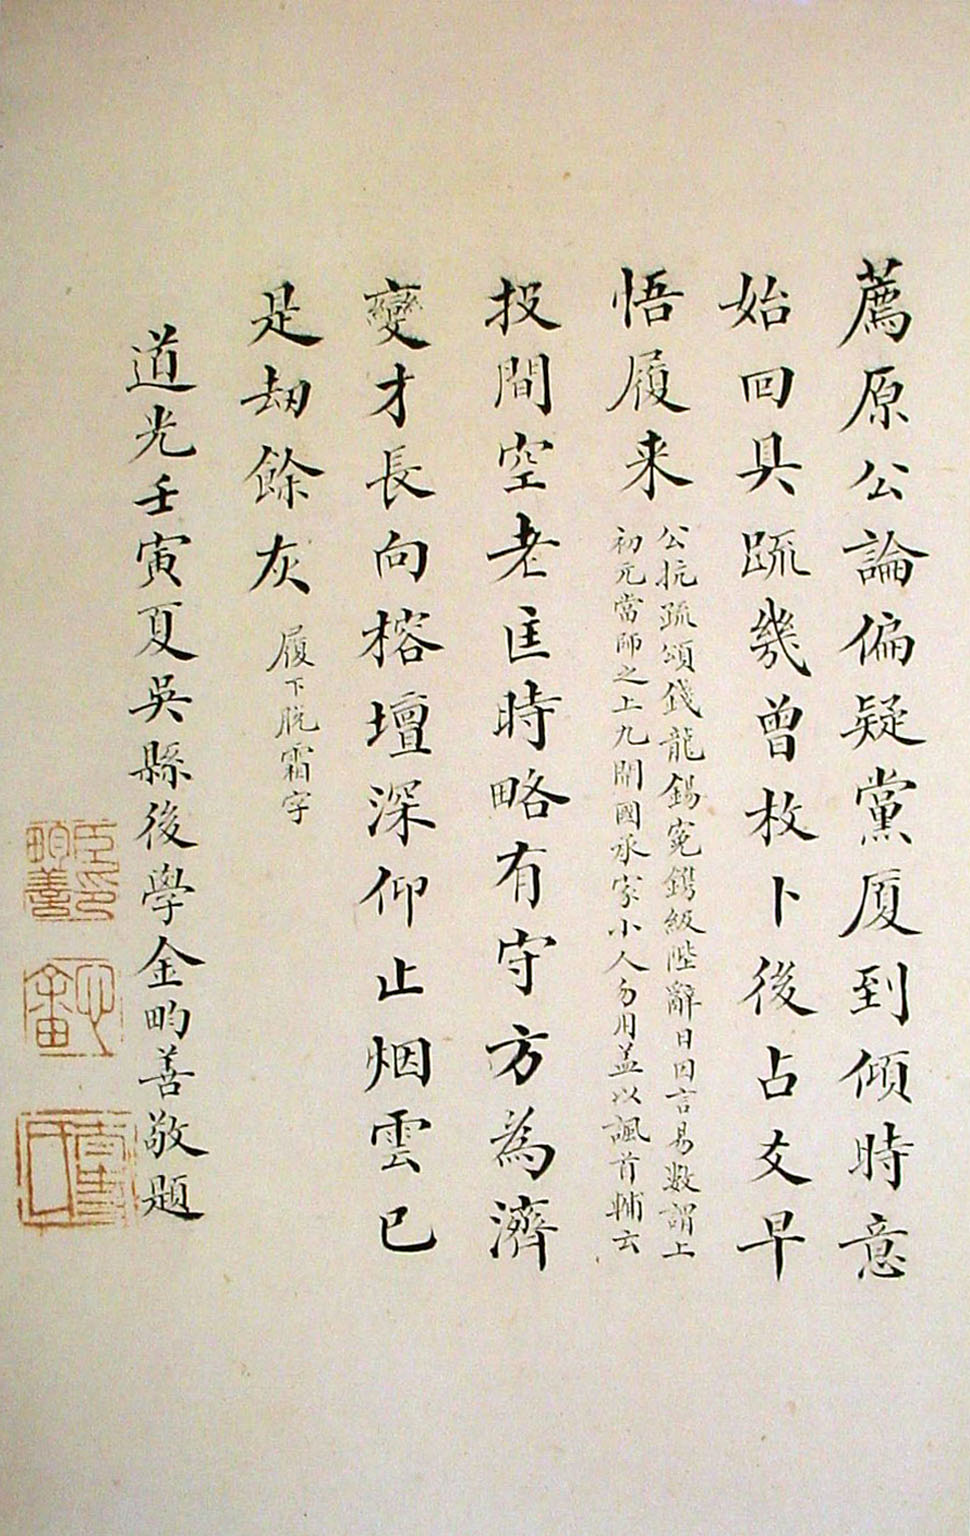 薦原公論偏疑黨厦到傾時意
始回具疏幾曾枚卜後占爻早
悟履来
公抗疏頌錢龍錫寃鐫級陛辭日因言易数謂上
初元當師之上九開國承家小人勿用盖以諷首輔云
投閒空老匡時略有守方為濟
變才長向榕壇深仰止烟雲已
是刼餘灰
履下脱霜字
道光壬寅夏吳縣後學金畇善敬題
臣印畇善